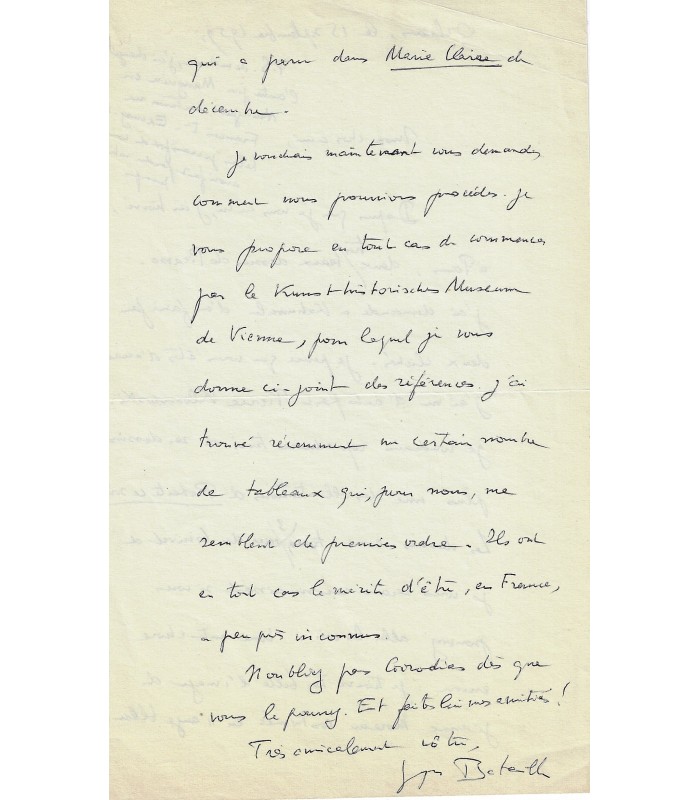 qui a paru dans Marie Claire de
décembre.
Je voudrais maintenant vous demander
comment nous pourrions procéder. Je
vous propose en tout cas de commencer
par le Kunsthistorisches Museum
de Vienne, pour lequel je vous
donne ci-joint des références. J'ai
trouvé récemment un certain nombre
de tableaux qui, pour nous, me
semblent de premier ordre. Ils ont
en tout cas le mérite d'être, en France,
à peu près inconnus.
N'oubliez pas Corrodias dès que
vous le pouvez. Et faites lui mes amitiés!
Très amicalement vôtre,
Georges Bataille